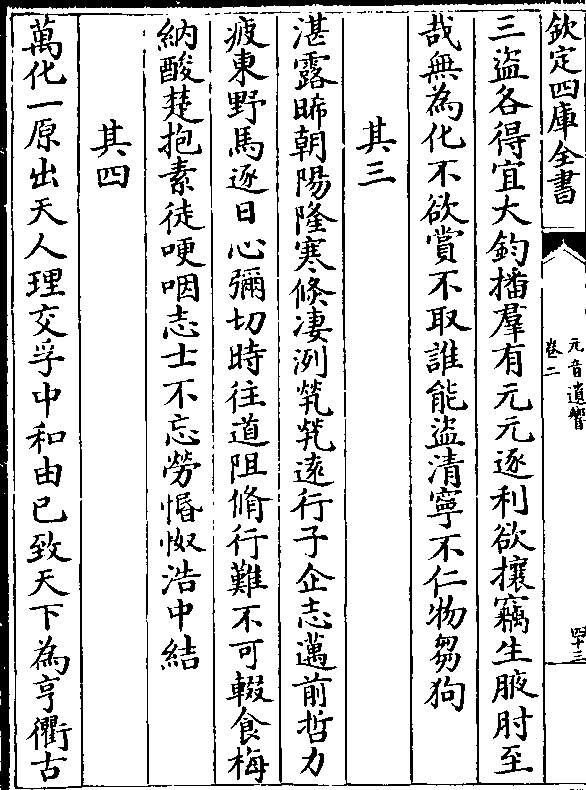 欽定四庫全書
元音遺響
卷二
四十三
三盜各得宜大鈞播羣有元元逐利欲攘竊生腋肘至
哉無為化不欲賞不取誰能盜清寧不仁物芻狗
其三
湛露晞朝陽隆寒倏凄冽煢煢遠行子企志邁前哲力
疲東野馬逐日心彌切時往道阻脩行難不可輟食梅
納酸楚抱素徒哽咽志士不忘勞惛怓浩中結
其四
萬化一原出天人理交孚中和由已致天下為亨衢古